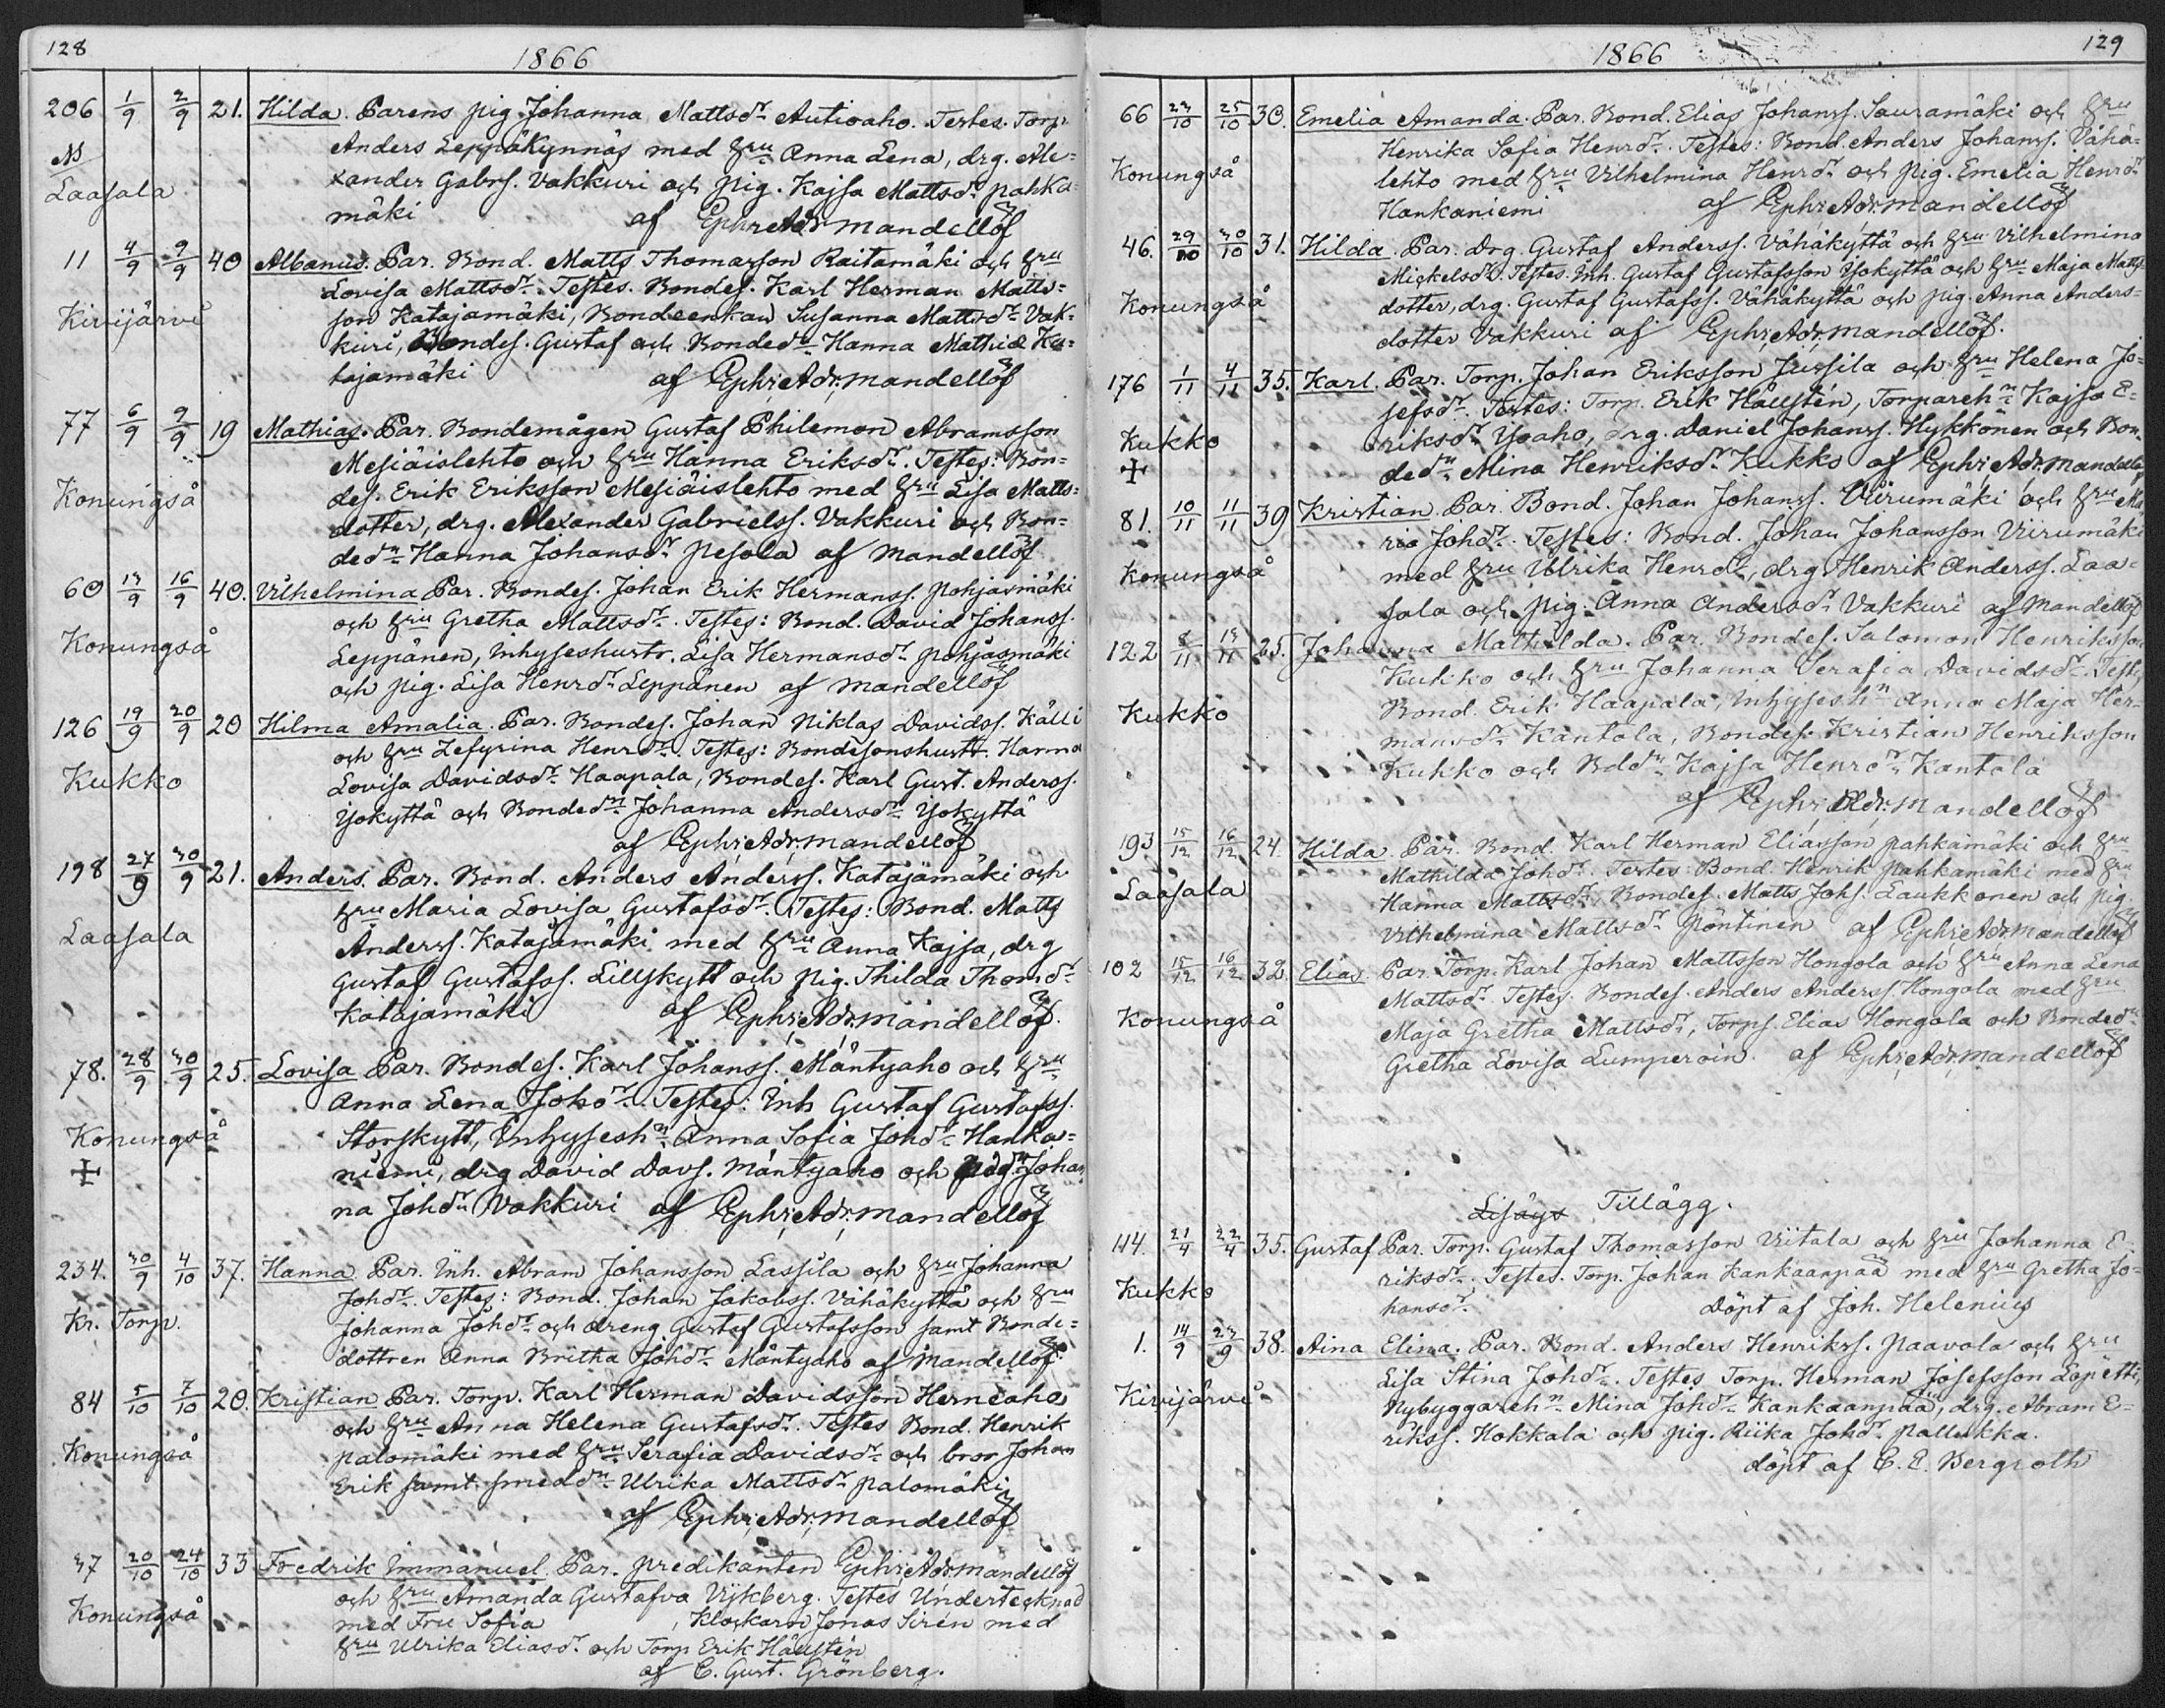 128
1866
206 1/9 2/9 21. Hilda. Parens pig. Johanna Mattsdr Autioaho. Testes. Torp.
Anders Leppäkynnäs med hru Anna Lena, drg. Ale=
Laasala xander Gabrs. Vakkuri och pig. Kajsa Mattsdr Pahka=
mäki af Ephr. Adr. Mandellöf
11 4/9 9/9 40 Albanus. Par. Bond. Matts Thomasson Raitamäki och hru
Lovisa Mattsdr. Testes. Bondes. Karl Herman Matts=
Kivijärvi son Katajamäki, Bondeenkan Susanna Mattsdr Vak=
kuri, Bondes. Gustaf och Bondedn Hanna Mathid Ka=
tajamäki af Ephr. Adr. Mandellöf
77 6/9 9/9 19 Mathias. Par. Bondemågen Gustaf Philemon Abramsson
Mesiäislehto och hru Hanna Eriksdr. Testes: Bon=
Konungså des. Erik Eriksson Mesiäislehto med hru Lisa Matts=
dotter, drg. Alexander Gabrielss. Vakkuri och Bon=
dedn Hanna Johansdr Pesola af Mandellöf
60 13/9 16/9 40. Vilhelmina Par. Bondes. Johan Erik Hermanss. Pohjasmäki
och hru Gretha Mattsdr. Testes: Bond. David Johanss.
Konungså Leppänen, Inhyseshustr. Lisa Hermansdr Pohjasmäki
och pig. Lisa Henrdr Leppänen af Mandellöf
126 19/9 20/9 20 Hilma Amalia. Par. Bondes. Johan Niklas Davidss. Källi
och hru Zefyrina Henrdr. Testes: Bondesonshustr. Hanna
Kukko Lovisa Davidsdr Haapala, Bondes. Karl Gust. Anderss.
Yokyttä och Bondedn Johanna Andersdr Yokyttä
af Ephr. Adr. Mandellöf
198 27/9 30/9 21. Anders. Par. Bond. Anders Anderss. Katajamäki och
hru Maria Lovisa Gustafsdr. Testes: Bond. Matts
Laasala Anderss. Katajamäki med hru Anna Kajsa, drg
Gustaf Gustafss. Lillskytt och pig. Thilda Thomdr
Katajamäki af Ephr. Adr. Mandellöf.
78. 28/9 30/9 25. Lovisa Par. Bondes. Karl Johanss. Mäntyaho och hru
Anna Lena Johdr. Testes: Inh Gustaf Gustafss.
Konungså Storskytt, Inhysesh Anna Sofia Johdr Hanka=
+ niemi, drg David Davs. Mäntyaho och pig. Johan
na Johdr Vakkuri af Ephr. Adr. Mandellöf
234. 30/9 4/10 37. Hanna Par. Inh. Abram Johansson Lassila och hru Johanna
Johdr. Testes: Bond. Johan Jakobss. Vähäkyttä och hru
Kr. Torp. Johanna Johdr och dreng Gustaf Gustafsson samt Bonde=
dottren Anna Britha Johdr Mäntyaho af Mandellöf.
84 5/10 7/10 20. Kristian Par. Torp. Karl Herman Davidsson Herneaho
och hru Anna Helena Gustafsdr. Testes Bond. Henrik
Konungså Palomäki med hru Serafia Davidsdr och bror Johan
Erik samt smeddn Ulrika Mattsdr Palomäki
af Ephr. Adr. Mandellöf
37 20/10 24/10 33 Fredrik Immanuel. Par. predikanten Ephr. Adr. Mandellöf
och hru Amanda Gustafva Vijkberg. Testes Undertecknad
Konungså med Fru Sofia , klockaren Jonas Sirén med
hru Ulrika Eliasdr och Torp Erik Hällstén
af C. Gust. Grönberg.
129
1866
66 23/10 25/10 30. Emelia Amanda. Par. Bond. Elias Johanss. Sauramäki och hru
Henrika Sofia Henrdr. Testes: Bond. Anders Johanss. Vähä=
Konungså lehto med hru Vilhelmina Henrdr och pig. Emelia Henrdr
Hankaniemi af Ephr. Adr. Mandellöf
46. 29/10 30/10 31. Hilda. Par. Drg. Gustaf Anderss. Vähäkyttä och hru Vilhelmina
Mickelsdr. Testes. Inh. Gustaf Gustafsson Yokyttä och hru Maja Matts
Konungså dotter, drg. Gustaf Gustafss. Vähäkyttä och pig. Anna Anders=
dotter Vakkuri af Ephr. Adr. Mandellöf.
176 1/11 4/11 35. Karl. Par. Torp. Johan Eriksson Jussila och hru Helena Jo=
sefsdr. Testes: Torp. Erik Hällstén, Torpareh Kajsa E=
Kukko riksdr Yoaho, drg. Daniel Johanss. Hykkönen och Bon=
+ dedn Mina Henriksdr Kukko af Ephr. Adr. Mandellöf
81. 10/11 11/11 39 Kristian. Par. Bond. Johan Johanss. Viirumäki och hru Ma
ria Johdr. Testes: Bond. Johan Johansson Viirumäki
Konungså med hru Ulrika Henrdr, drg. Henrik Anderss. Laa=
sala och pig. Anna Andersdr Vakkuri af Mandellöf
122 8/11 13/11 25. Johanna Mathilda. Par. Bondes. Salomon Henriksson
Kukko och hru Johanna Serafia Davidsdr. Testes
Kukko Bond. Erik Haapala, Inhysesh Anna Maja Her=
mansdr Kantola, Bondes. Kristian Henriksson
Kukko och Bddn Kajsa Henrdr Kantola
af Ephr. Adr. Mandellöf
193 15/12 16/12 24. Hilda. Par. Bond. Karl Herman Eliasson Pahkamäki och hru
Mathilda Johdr. Testes: Bond. Henrik Pahkamäki med hru
Laasala Hanna Mattsdr Bondes. Matts Johs. Laukkonen och pig.
Vilhelmina Mattsdr Pöntinen af Ephr. Adr. Mandellöf
102 15/12 16/12 32. Elias. Par. Torp. Karl Johan Mattsson Hongola och hru Anna Lena
Mattsdr. Testes. Bondes. Anders Anderss. Hongola med hru
Konungså Maja Gretha Mattsdr, Torps. Elias Hongola och Bondedn
Gretha Lovisa Lumperoin. af Ephr. Adr. Mandellöf
Lisäys Tillägg.
114. 21/4 22/4 35. Gustaf Par. Torp. Gustaf Thomasson Viitala och hru Johanna E=
riksdr. Testes. Torp. Johan Kankaanpää med hru Gretha Jo=
Kukko hansdr. Döpt af Joh. Helenius
1. 14/9 23/9 38. Aina Elina. Par. Bond. Anders Henrikss. Paavola och hru
Lisa Stina Johdr. Testes Torp. Herman Josefsson Lopetti,
Kivijärvi Nybyggareh Mina Johdr Kankaanpää, drg. Abram E=
rikss. Hokkala och pig. Riika Johdr Pallukka.
döpt af C. E. Bergroth